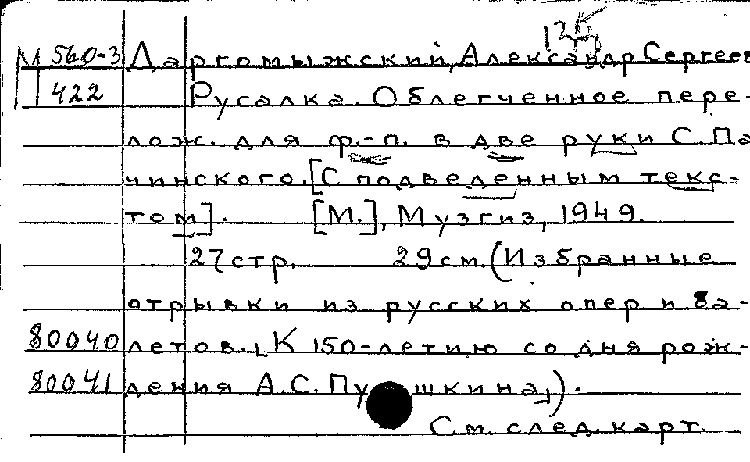 М 560-3 Даргомыжский, Александр Сергеев
422 Русалка. Облегченное пере-
лож. для ф.-п. в две руки С. Па
чинского. [С подведенным текс-
том]. [М.], Музгиз, 1949.
27 стр. 29 см. (Избранные
отрывки из русских опер и ба-
80040 летов. К 150-летию со дня рож-
80041 дения А.С. Пушкина).
См. след. карт.